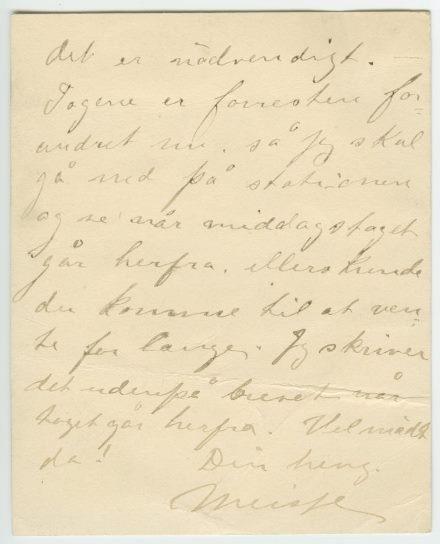 det er nödvendigt. —
Togene er forresten for-
andret nu, så jeg skal
gå ned på stationen
og se når middagstoget
går herfra, ellers kunde
du komme til at ven-
te for længe. Jeg skriver
det udenpå brevet når
toget går herfra. Vel mödt
da! Din heng.